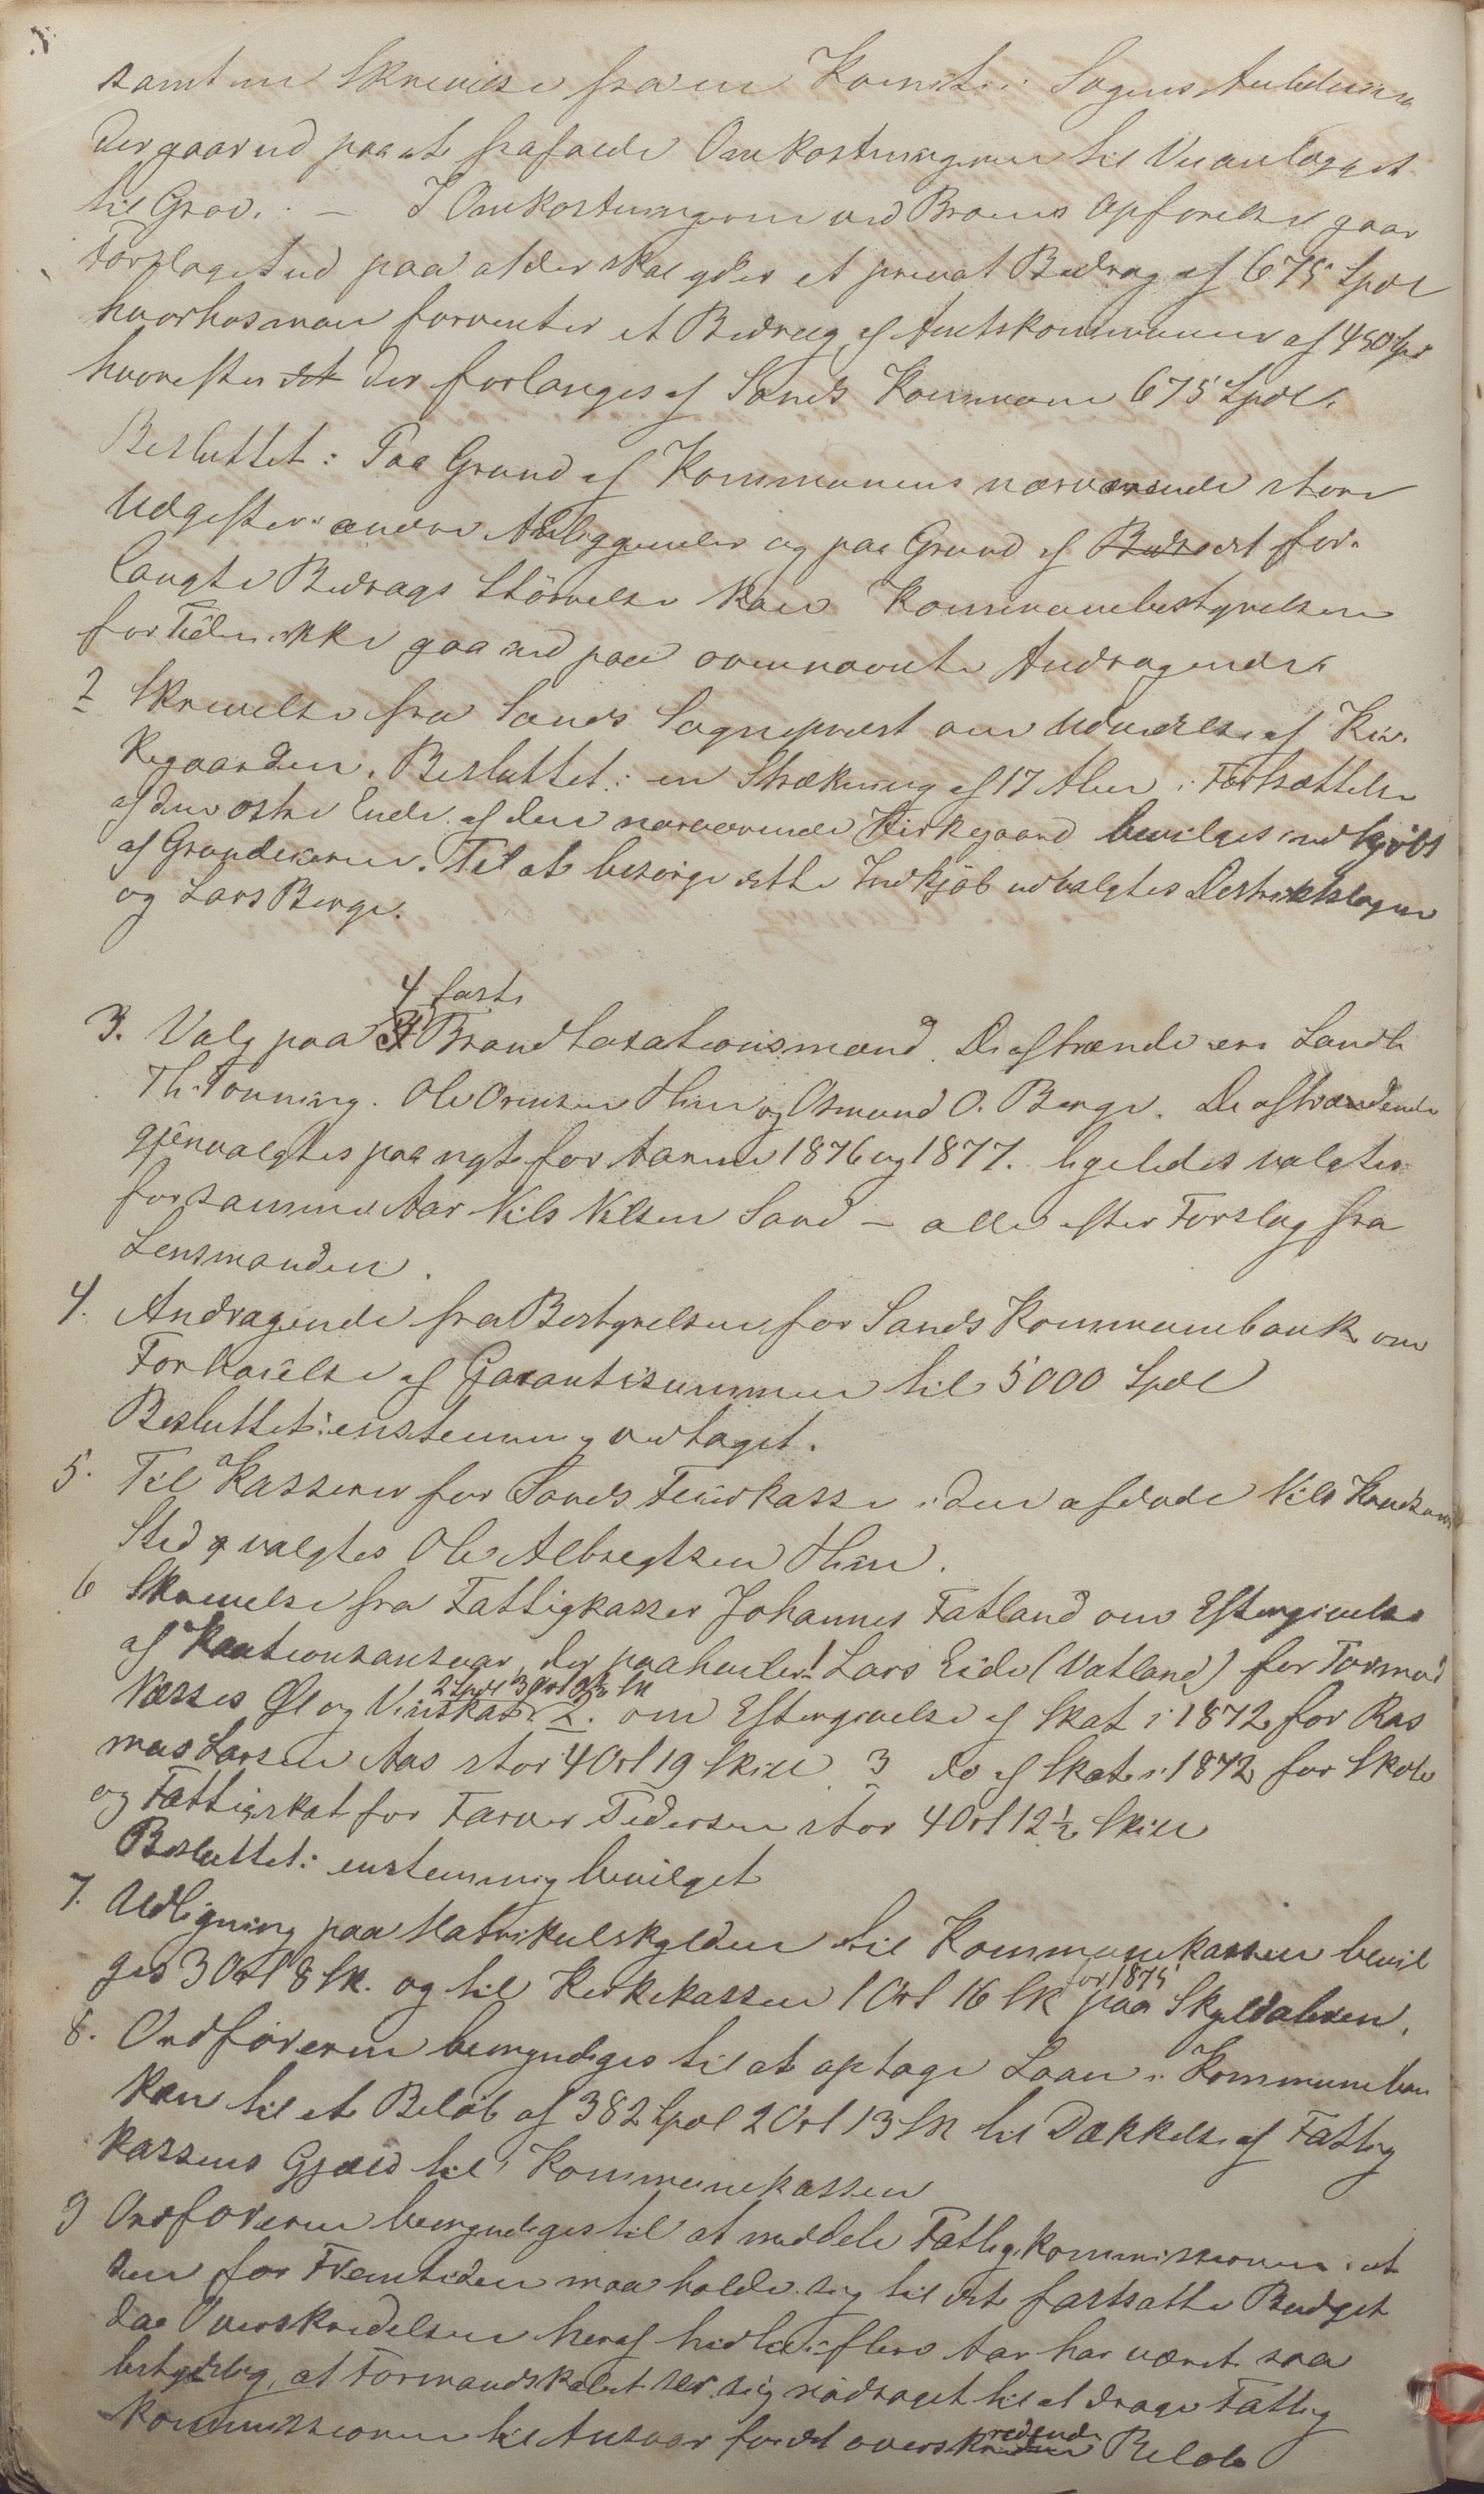 samt en Skrivelse fra en Komite i Sagens Anledning
der gaar ud paa at frafalde Omkostningerne til Veianlægget
til Grov. — I Omkostningerne ved Broens Opförelse gaar
Forslaget ud paa at der skal ydes et privat Bidrag af 675 Spdl
hvorhos man forventer et Bidrag af Amtskommunen af 450 Spd
hvorefter det der forlanges af Sands Kommune 675 Spdl.
Besluttet: Paa Grund af Kommunens nærværende store
Udgifter i andre Anliggender og paa Grund af det for-
langte Bidrags Störrelse kan Kommunebestyrelsen
for Tiden ikke gaa ind paa ovennævnte Andragende.
2 Skrivelse fra Sands Sogneprest om Udvidelse af Kir-
kegaarden. Besluttet: en Strækning af 17 Alen i Fortsættelse
af den östre Ende af den nærværende Kirkegaard bevilges indkjöbt
af Grundeieren. Til at besörge dette Indkjöb udvalgtes Distriktslægen
og Lars Berge.
4 faste
3. Valg paa 3 Brandtaxationsmænd. De aftrædende ere Landh.
Th. Tonning. Ole Ormsen Hiim og Osmund O. Berge. De aftrædende
gjenvalgtes paa nyt for Aarene 1876 og 1877. ligeledes valgtes
for samme Aar Nils Nilsen Sand – alle efter Forslag fra
Lensmanden.
4. Andragende fra Bestyrelsen for Sands Kommunebank om
Forhöielse af Garantisummen til 5000 Spdl
Besluttet: enstemmig vedtaget.
5. Til Kasserer for Sands Feierkasse i den afdöde Nils Knudsens
Sted valgtes Ole Albregtsen Hiim.
6 Skrivelse fra Fattigkasser Johannes Fatland om Eftergivelse
af Kautionsansvar, der paahviler 1 Lars Eide (Vatland) for Tormod
Næsses Øl og Vinskat 2 Spdl 3 Ort Sk 2. om Eftergivelse af Skat i 1872 for Ras
mus Larsen Aas stor 4 Ort 19 Skill 3 do af Skat i 1872 for Skole
og Fattigskat for Farver Pedersen stor 4 Ort 12½ Skill
Besluttet: enstemmig bevilget
7. Udligning paa Matrikulskylden til Kommunekassen bevil
ges 3 Ort 8 Sk. og til Kirkekassen 1 Ort 16 Sk for 1875 paa Skylddaleren.
8. Ordföreren bemyndiges til at optage Laan i Kommuneban
ken til et Belöb af 382 Spdl 2 Ort 13 Sk til Dækkelse af Fattig
kassens Gjæld til Kommunekassen
9 Ordföreren bemyndiges til at meddele Fattigkommissionen at
den for Fremtiden maa holde sig til det fastsatte Budget
da Overskridelsen heraf hidtil i flere Aar har været saa
betydelig, at Formandskabet ser sig nödsaget til at drage Fattig
kommissionen til Ansvar for det overskridende Belöb